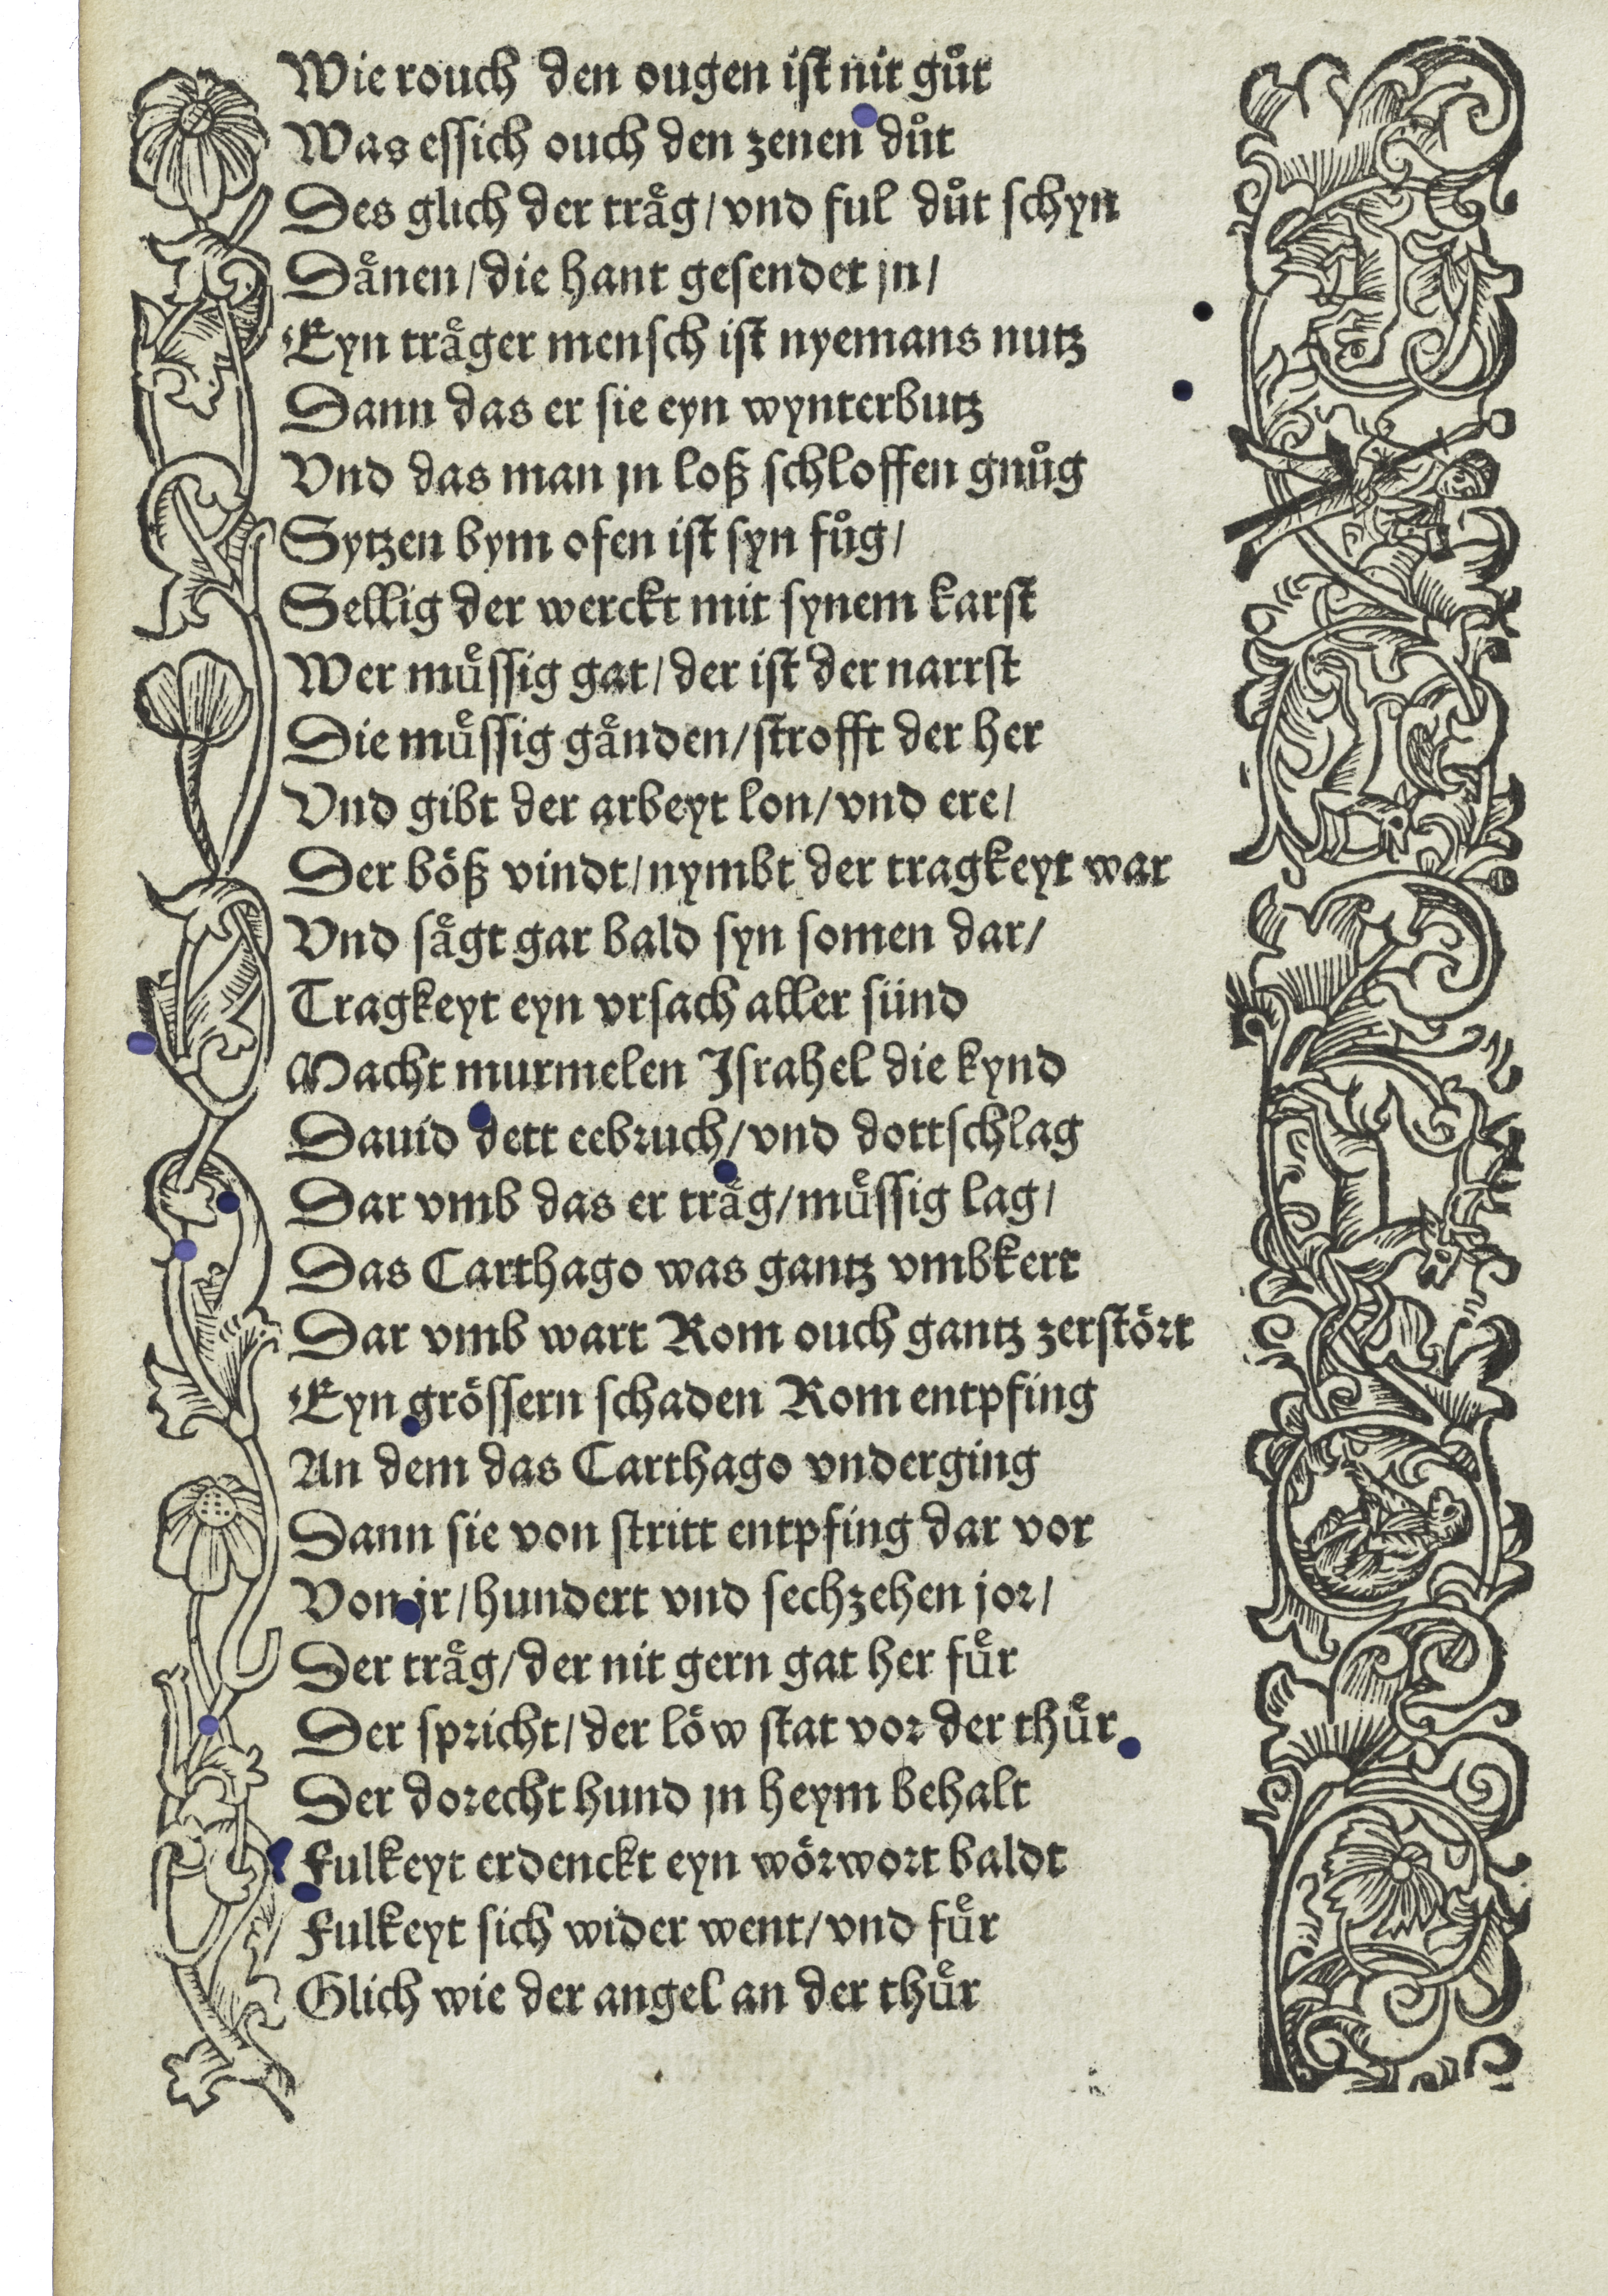 Wie rouch den ougen ist nit gůt
Was essich ouch den zenen důt
Des glich der traͤg / vnd ful důt schyn
Daͤnen / die hant gesendet jn /
Eyn traͤger mensch ist nyemans nutz
Dann das er sie eyn wynterbutz
Vnd das man jn loß schloffen gnůg
Sytzen bym ofen ist syn fůg /
Sellig der werckt mit synem karst
Wer muͤssig gat / der ist der narrst
Die muͤssig gaͤnden / strofft der her
Vnd gibt der arbeyt lon / vnd ere /
Der böß vindt / nymbt der tragkeyt war
Vnd saͤgt gar bald syn somen dar /
Tragkeyt eyn vrsach aller sünd
Macht murmelen Jsrahel die kynd
Dauid dett eebruch / vnd dottschlag
Dar vmb das er traͤg / muͤssig lag /
Das Carthago was gantz vmbkert
Dar vmb wart Rom ouch gantz zerstört
Eyn grössern schaden Rom entpfing
An dem das Carthago vnderging
Dann sie von stritt entpfing dar vor
Von jr / hundert vnd sechzehen jor /
Der traͤg / der nit gern gat her fuͤr
Der spricht / der löw stat vor der thuͤr
Der dorecht hund jn heym behalt
Fulkeyt erdenckt eyn wörwort baldt
Fulkeyt sich wider went / vnd fuͤr
Glich wie der angel an der thuͤr